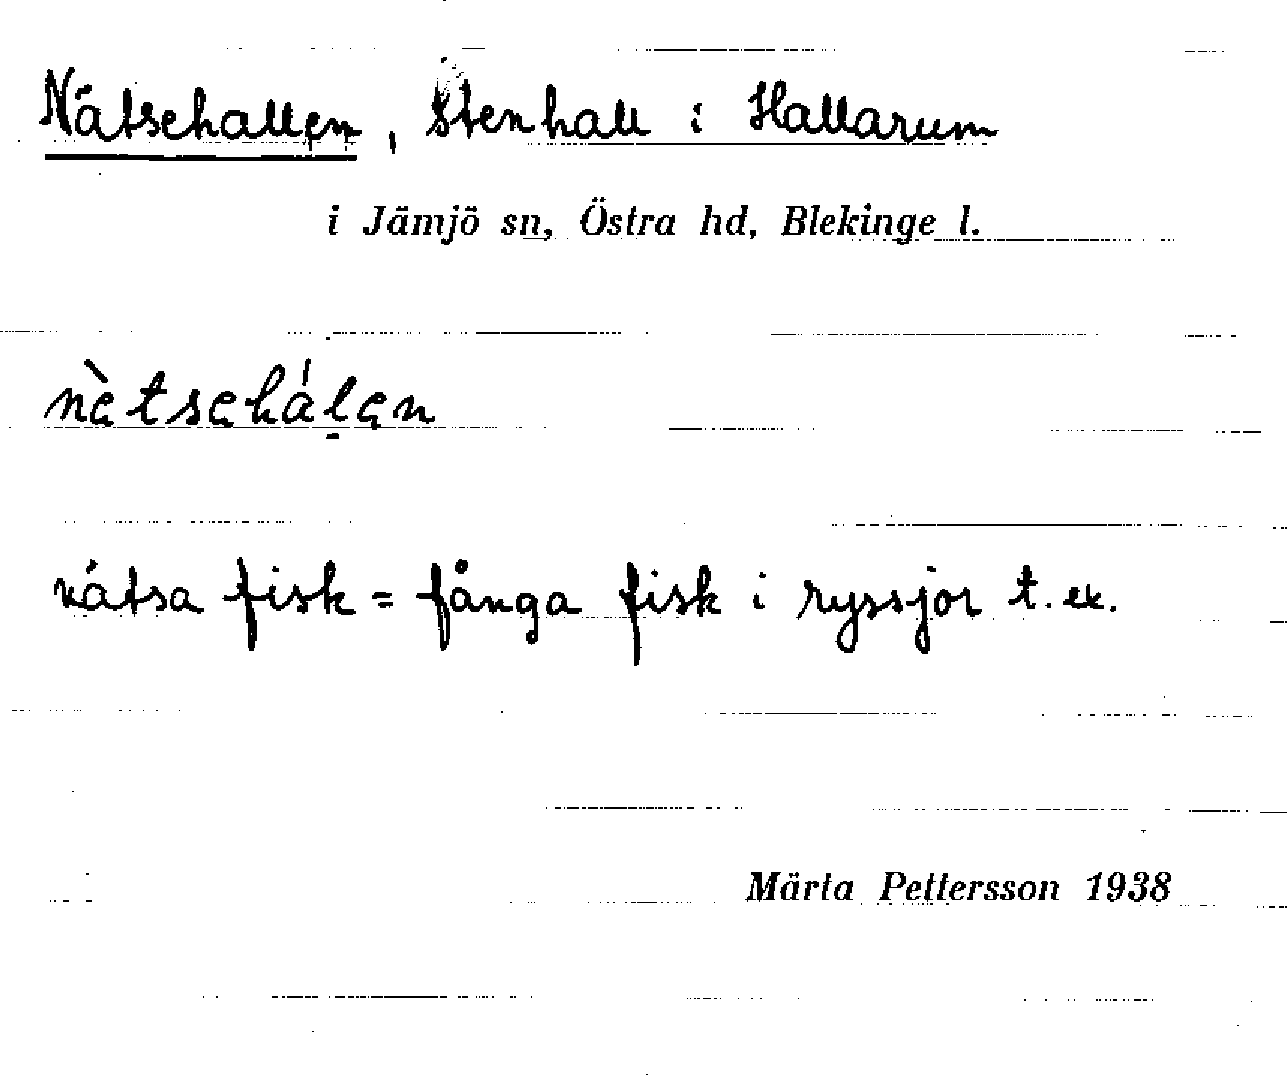 Nätsehallen, Stenhall i Hallarum
i Jämjö sn, Östra hd, Blekinge l.
nätsa fisk = fånga fisk i ryssjor t. ex.
Märta Pettersson 1938